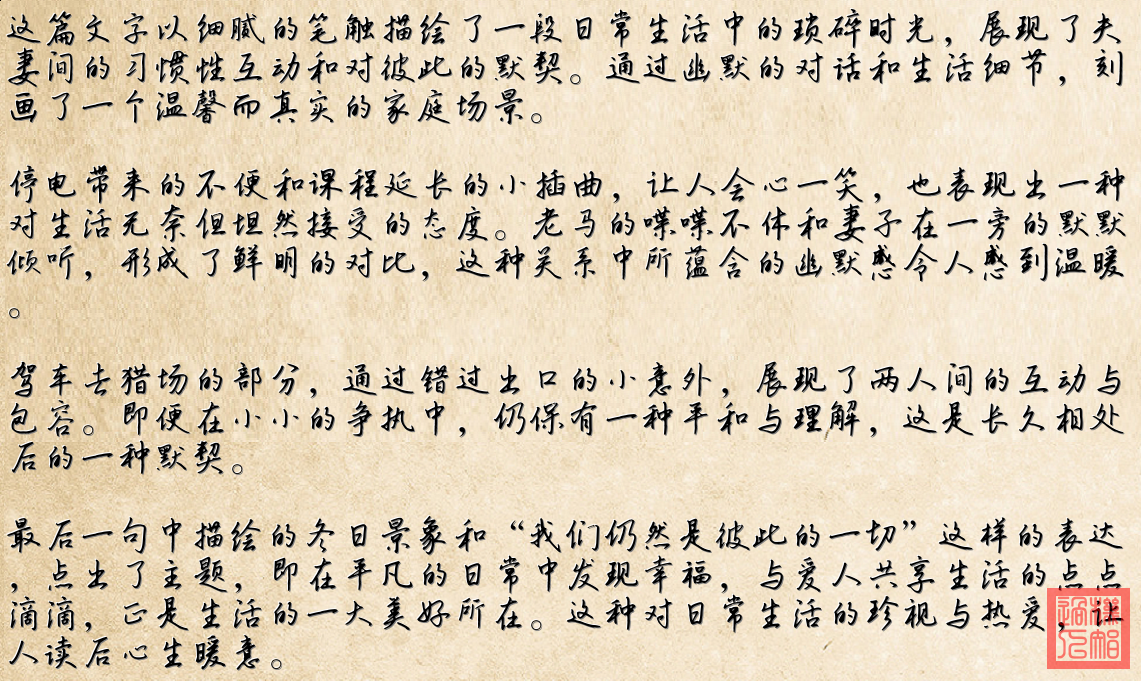 这篇文字以细腻的笔触描绘了一段日常生活中的琐碎时光，展现了夫
妻间的习惯性互动和对彼此的默契。通过幽默的对话和生活细节，刻
画了一个温馨而真实的家庭场景。
停电带来的不便和课程延长的小插曲，让人会心一笑，也表现出一种
对生活无奈但坦然接受的态度。老马的喋喋不休和妻子在一旁的默默
倾听，形成了鲜明的对比，这种关系中所蕴含的幽默感令人感到温暖
。
驾车去猎场的部分，通过错过出口的小意外，展现了两人间的互动与
包容。即便在小小的争执中，仍保有一种平和与理解，这是长久相处
后的一种默契。
最后一句中描绘的冬日景象和“我们仍然是彼此的一切”这样的表达
，点出了主题，即在平凡的日常中发现幸福，与爱人共享生活的点点
滴滴，正是生活的一大美好所在。这种对日常生活的珍视与热爱，让
人读后心生暖意。